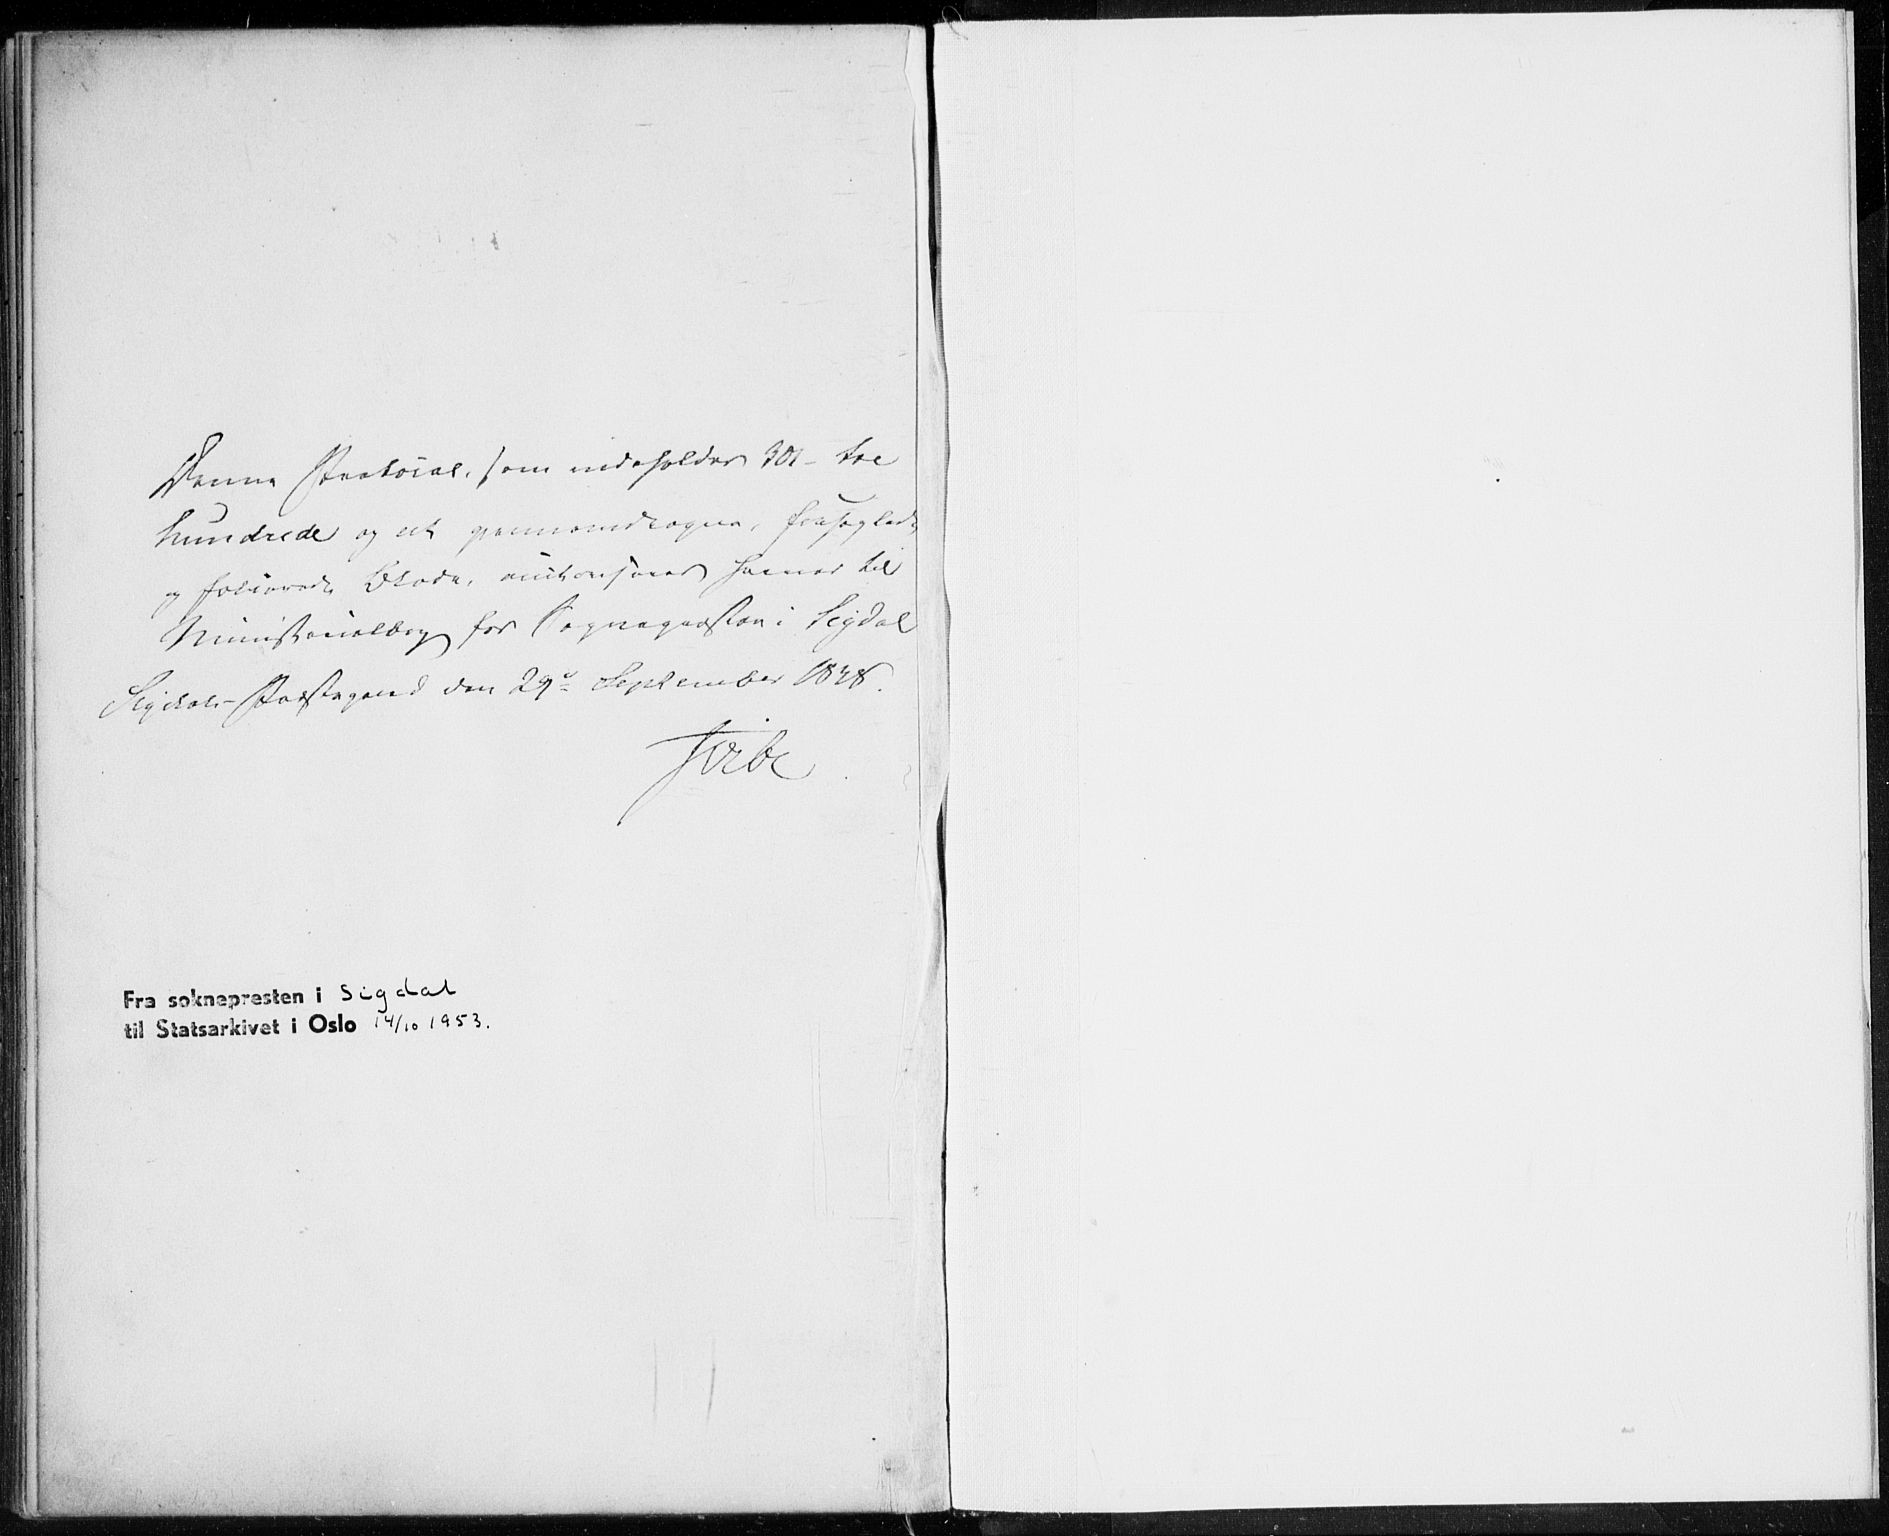 Denne Protocol, som indeholder 301 - tre
hundrede og et gjennemdragne, forseglede
og folierede Blade, authoriseres herved til
Ministerialbog for Sognepræsten i Sigdal
Sigdals Præstegaard den 29de September 1848.
Fra soknepresten i Sigdal
til Statsarkivet i Oslo 14/10 1953.